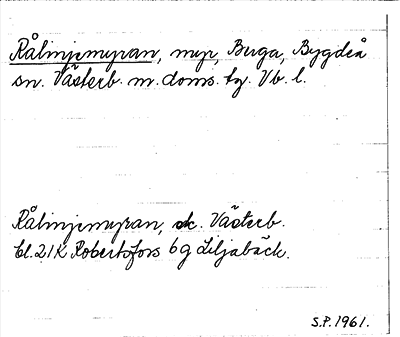 Rålinjemyran, myr, Berga, Bygdeå
sn. Västerb. m. doms. tg. Vb. l.
Rålinjemyran, sk. Västerb.
bl. 21K Robertsfors 6g Liljabäck.
S.P. 1961.